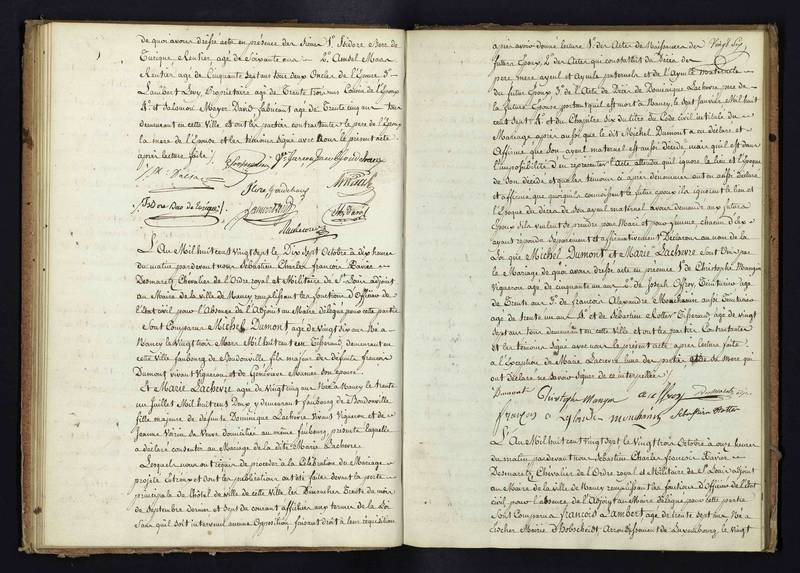 de quoi avons dressé acte en présence des Sieurs 1º. Isidore Bere de
Turique Rentier, agé de Soixante ans 2º. Amsel Max
Rentier agé de Cinquante Sept ans tous deux Oncles de l'Epouse 3º
Lambert Levy, Propriétaire, agé de Trente Trois ans Cousin de l'Epoux
4º. et Salomon Mayer David, fabricant, agé de Trente cinq ans tous
demeurant en cette Ville et ont les parties contractantes le pere de l'Epoux
la mere de l'Epouse et les témoins signé avec nous le présent acte
après lecture faite.
L'An Mil huit cent Vingt sept le Dix Sept Octobre à dix heures
du matin par devant nous Sébastien Charles françois Xavier
Desmaretz Chevalier de l'Ordre royal et Militaire de St. Louis adjoint
au Maire de la ville de Nancy remplissant les fonctions d'Officier de
l'état civil pour l'absence de l'Adjoint au Maire délégué pour cette partie
Sont Comparus Michel Dumont agé de Vingt Six ans Né à
Nancy le Vingt trois Mars Mil huit cent un Tisserand, demeurant en
cette Ville faubourg de Boudonville fils majeur des défunts françois
Dumont vivant Vigneron et de Géneviève Maniére son épouse.
Et Marie Lachevre agée de Vingt cinq ans Née à Nancy le trente
un Juillet Mil huit cent Deux y demeurant faubourg de Boudonville
fille majeure de défunt Dominique Lachevre Vivant Vigneron et de
Jeanne Voirin Sa Veuve domiciliée au même faubourg, présente laquelle
a déclaré consentir au Mariage de la dite Marie Lachevre.
Lesquels nous ont requis de procéder à la Célébration du Mariage
projeté entr'eux et dont les publications ont été faites devant la porte
principale de l'hôtel de ville de cette Ville les Dimanches Trente du mois
de Septembre dernier et Sept du courant affichées aux termes de la Loi
Sans qu'il soit intervenu aucune Opposition, faisant droit à leur réquisition
Vingt Six
après avoir donné lecture 1º. des Actes de Naissance des
futurs Epoux, 2º. des Actes qui constatent les Décès des
pere, mere, ayeul et ayeule paternels et de l'Ayeule maternelle
du futur Epoux 3º. de l'Acte de Décès de Dominique Lachevre, pere de
la future Epouse portant qu'il est mort à Nancy, le Sept Janvier Mil huit
cent Sept 4º. et du Chapitre Six du titre du Code civil intitulé du
Mariage, après aussi que le dit Michel Dumont a eu déclaré et
affirmé que Son ayeul maternel est aussi décédé mais qu'il est dans
l'impossibilité d'en représenter l'acte attendu qu'il ignore le lieu et l'Epoque
de Son décès et que les témoins à après dénommés ont eu aussi déclaré
et affirmé que quoiqu'ils connoissent le futur époux ils ignorent le lieu et
l'Epoque du décès de Son ayeul maternel avons demandé aux futurs
Epoux S'ils veulent se prendre pour Mari et pour femme, chacun d'eux
ayant répondu séparément et affirmativement Déclarons au nom de la
Loi que Michel Dumont et Marie Lachevre sont Unis par
le Mariage, de quoi avons dressé acte en présence 1º. de Christophe Mangin
Vigneron agé de cinquante un ans 2º. de Joseph Offroy, Teinturier agé
de Trente ans 3º. de François Alexandre Mouchanin aussi Teinturier
agé de trente un ans 4º. et de Sébastien Rotter Tisserand, agé de vingt
Sept ans tous demeurant en cette Ville et ont les parties Contractantes
et les témoins signé avec nous le présent acte après lecture faite
à l'exception de Marie Lachevre l'une des parties et de Sa mere qui
ont déclaré ne savoir signer de ce interpellées.
Dumont Christophe Mangin
Sebastien Rotter
L'An Mil huit cent Vingt Sept le Vingt trois Octobre à onze heures
du matin par devant nous Sébastien Charles françois Xavier
Desmaretz, Chevalier de l'Ordre royal et Militaire de St. Louis adjoint
au Maire de la ville de Nancy remplissant les fonctions d'Officier de l'état
civil, pour l'absence de l'Adjoint au Maire délégué pour cette partie
Sont Comparus François Lambert agé de trente Sept ans Né à
Rocher Mairie d'Hobscheidt, Arrondissement de Luxembourg, le Vingt